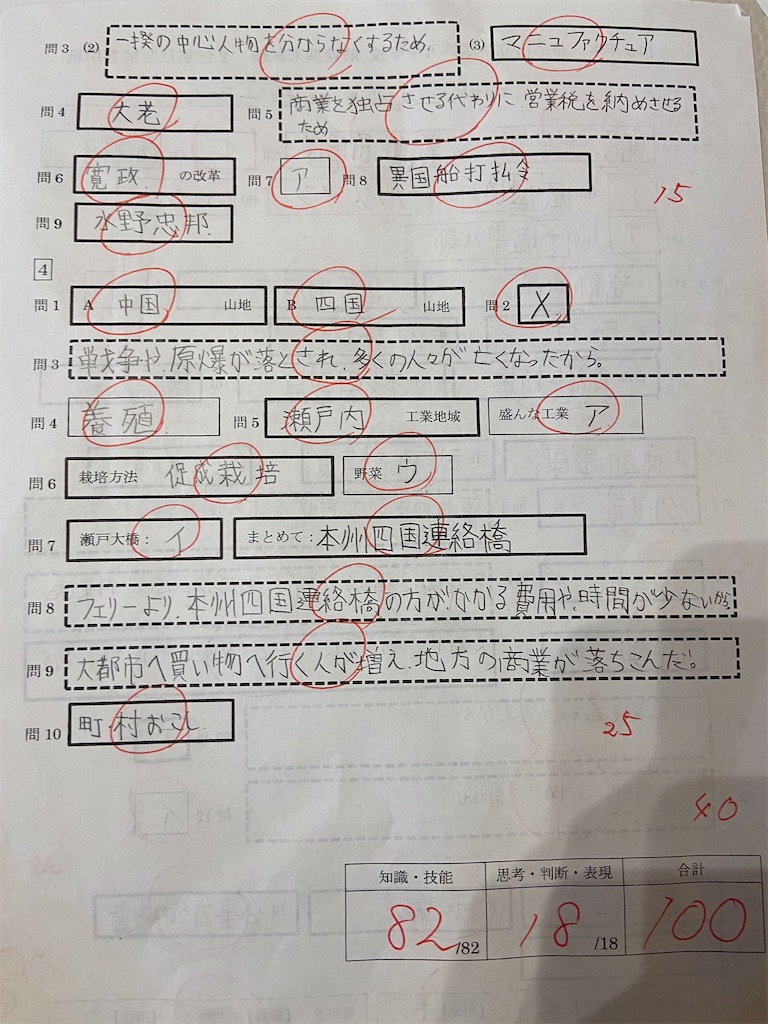 問3 (2) 一揆の中心人物を分からなくするため。 (3) マニュファクチュア
問4 大老 問5 商業を独占させる代わりに、営業税を納めさせる
ため
問6 寛政 の改革 問7 ア 問8 異国船打払令
15
問9 水野忠邦
4
問1 A 中国 山地 B 四国 山地 問2 X
問3 戦争や、原爆が落とされ、多くの人々が亡くなったから。
問4 養殖 問5 瀬戸内 工業地域 盛んな工業 ア
問6 栽培方法 促成栽培 野菜 ウ
問7 瀬戸大橋: イ まとめて: 本州四国連絡橋
問8 フェリーより、本州四国連絡橋の方がかかる費用や、時間が少ないから。
問9 大都市へ買い物へ行く人が増え、地方の商業が落ちこんだ。
問10 町・村おこし
25
40
知識・技能 思考・判断・表現 合計
82/82 18/18 100